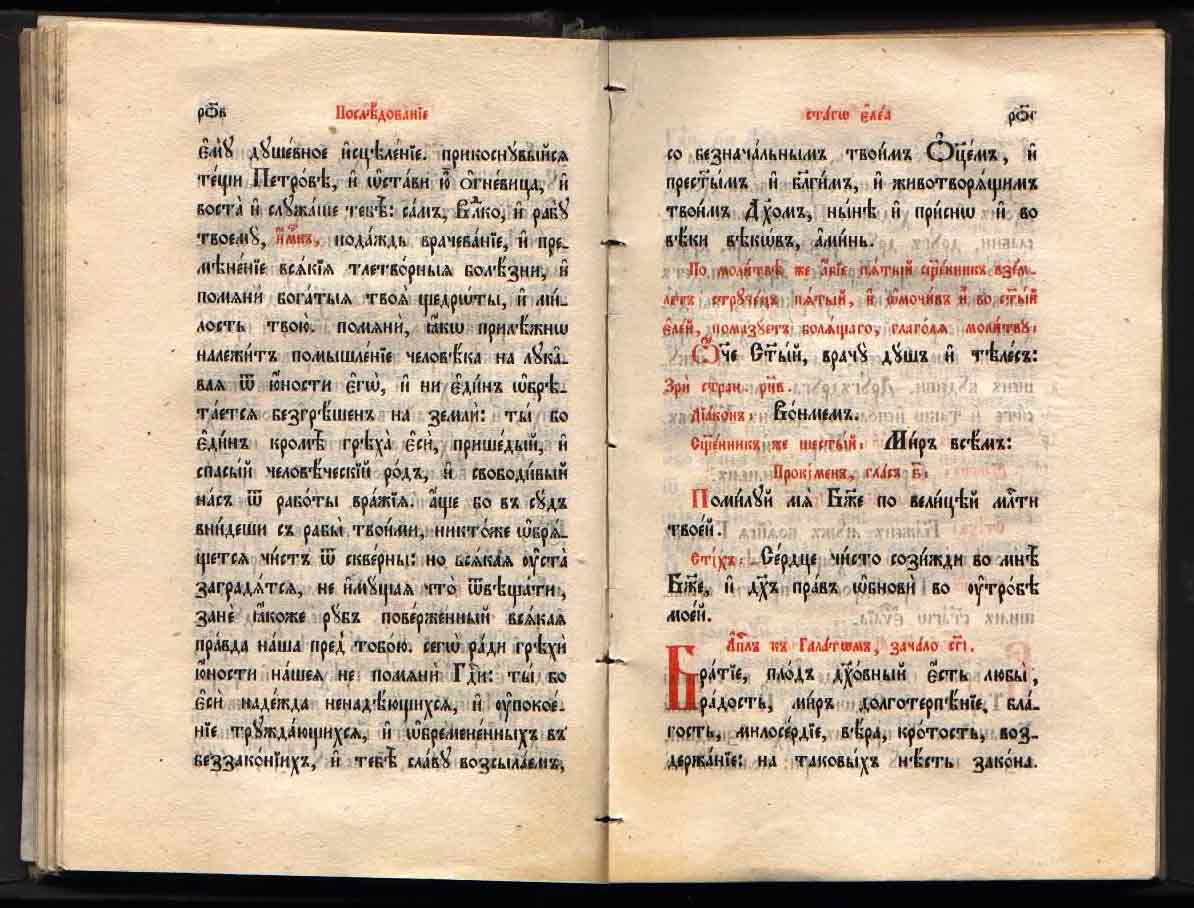 рѯ҃в
Послѣ́дованїе
є҆мꙋ̀ дꙋше́вное и҆сцѣле́нїе. прикоснꙋ́выйсѧ
те́щи Петро́вѣ, и҆ ѡ҆ста́ви ю҆̀ ѻ҆гневи́ца, и҆
воста̀ и҆ слꙋжа́ше тебѣ̀: са́мъ, Влⷣко, и҆ рабꙋ̀
твоемꙋ̀, и҆́м҃къ, пода́ждь врачева́нїе, и҆ пре-
мѣне́нїе всѧ́кїѧ тлетво́рныѧ болѣ́зни, и҆
помѧнѝ бога́тыѧ твоѧ̑ щедрѡ́ты, и҆ ми́-
лость твою̀. помѧнѝ, ꙗ҆́кѡ прилѣ́жнѡ
належи́тъ помышле́нїе человѣ́ка на лꙋка́-
ваѧ ѿ ю҆́ности є҆гѡ̀, и҆ ни є҆ди́нъ ѡ҆брѣ-
та́етсѧ безгрѣ́шенъ на землѝ: ты́ бо
є҆ди́нъ кромѣ̀ грѣха̀ є҆сѝ, прише́дый, и҆
спасы́й человѣ́ческїй ро́дъ, и҆ свободи́вый
на́съ ѿ рабо́ты вра́жїѧ. а҆́ще бо въ сꙋ́дъ
вни́деши съ рабы̑ твои́ми, никто́же ѡ҆брѧ́-
щетсѧ чи́стъ ѿ скве́рны: но всѧ́каѧ ᲂу҆ста̀
заградѧ́тсѧ, не и҆мꙋ́щаѧ что̀ ѿвѣща́ти,
занѐ ꙗ҆́коже рꙋ́бъ пове́рженный всѧ́каѧ
пра́вда на́ша пред̾ тобо́ю. сегѡ̀ ра́ди грѣхѝ
ю҆́ности на́шеѧ не помѧнѝ Гдⷭ҇и: ты́ бо
є҆сѝ наде́жда ненадѣ́ющихсѧ, и҆ ᲂу҆покое́-
нїе трꙋжда́ющихсѧ, и҆ ѡ҆бремене́нныхъ въ
беззако́нїихъ, и҆ тебѣ̀ сла́вꙋ возсыла́емъ,
ст҃а́гѡ є҆ле́а
рѯ҃г
со безнача́льнымъ твои́мъ Ѻ҆ц҃е́мъ, и҆
прест҃ы́мъ и҆ бл҃ги́мъ, и҆ животворѧ́щимъ
твои́мъ Дх҃омъ, ны́нѣ и҆ при́снѡ и҆ во
вѣ́ки вѣкѡ́въ, а҆ми́нь.
По моли́твѣ же а҆́бїе пѧ́тый сщ҃е́нникъ взе́м-
летъ стрꙋче́цъ пѧ́тый, и҆ ѡ҆мочи́въ и҆̀ во ст҃ы́й
є҆ле́й, помазꙋ́етъ болѧ́щаго, глаго́лѧ моли́твꙋ:
Ѻ҆́ч҃е Ст҃ы́й, врачꙋ̀ дꙋ́шъ и҆ тѣле́съ:
Зрѝ стран. рн҃в.
Дїа́конъ: Во́нмемъ.
Сщ҃е́нникъ же шесты́й: Ми́ръ всѣ́мъ:
Проки́менъ, гла́съ ѕ҃:
Поми́лꙋй мѧ̀ Бж҃е по вели́цѣй млⷭ҇ти
твое́й.
Сті́хъ: Се́рдце чи́сто сози́жди во мнѣ̀
Бж҃е, и҆ дх҃ъ пра́въ ѡ҆бновѝ во ᲂу҆тро́бѣ
мое́й.
А҆пⷭ҇лъ къ Гала́тѡмъ, зача́ло сг҃і.
Бра́тїе, пло́дъ дх҃о́вный є҆́сть любы̀,
ра́дость, ми́ръ долготерпѣ́нїе, бла́-
гость, милосе́рдїе, вѣ́ра, кро́тость, воз-
держа́нїе: на таковы́хъ нѣ́сть зако́на.